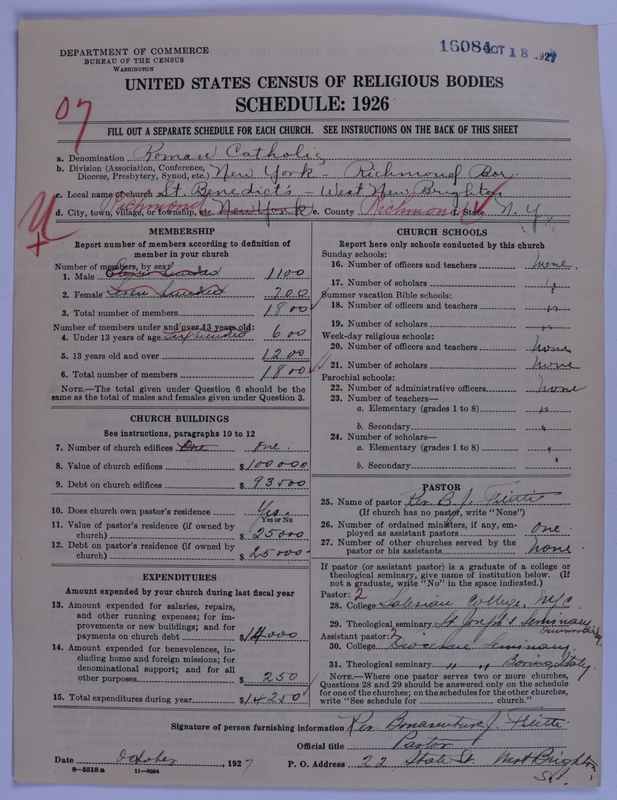 DEPARTMENT OF COMMERCE
BUREAU OF THE CENSUS
WASHINGTON
16084 OCT 18 1927
UNITED STATES CENSUS OF RELIGIOUS BODIES
SCHEDULE: 1926
07
FILL OUT A SEPARATE SCHEDULE FOR EACH CHURCH. SEE INSTRUCTIONS ON THE BACK OF THIS SHEET
a. Denomination Roman Catholic
b. Division (Association, Conference, Diocese, Presbytery, Synod, etc.) New York - Richmond Bor.
c. Local name of church St. Benedict's - West New Brighton
d. City, town, village, or township, etc. Richmond New York e. County Richmond f. State N.Y.
MEMBERSHIP
Report number of members according to definition of
member in your church
Number of members, by sex:
1. Male 1100
2. Female 700
3. Total number of members 1800
Number of members under and over 13 years old:
4. Under 13 years of age Six hundred 600
5. 13 years old and over 1200
6. Total number of members 1800
NOTE.—The total given under Question 6 should be the
same as the total of males and females given under Question 3.
CHURCH BUILDINGS
See instructions, paragraphs 10 to 12
7. Number of church edifices One one.
8. Value of church edifices $100000
9. Debt on church edifices $93500
10. Does church own pastor's residence Yes.
Yes or No
11. Value of pastor's residence (if owned by
church) $25000
12. Debt on pastor's residence (if owned by
church) $25000
EXPENDITURES
Amount expended by your church during last fiscal year
13. Amount expended for salaries, repairs,
and other running expenses; for im-
provements or new buildings; and for
payments on church debt $14000
14. Amount expended for benevolences, in-
cluding home and foreign missions; for
denominational support; and for all
other purposes $250
15. Total expenditures during year $14250
CHURCH SCHOOLS
Report here only schools conducted by this church
Sunday schools:
16. Number of officers and teachers none.
17. Number of scholars "
Summer vacation Bible schools:
18. Number of officers and teachers "
19. Number of scholars "
Week-day religious schools:
20. Number of officers and teachers none
21. Number of scholars none
Parochial schools:
22. Number of administrative officers none
23. Number of teachers—
a. Elementary (grades 1 to 8) "
b. Secondary "
24. Number of scholars—
a. Elementary (grades 1 to 8) "
b. Secondary "
PASTOR
25. Name of pastor Rev. B. J.
(If church has no pastor, write "None")
26. Number of ordained ministers, if any, em-
ployed as assistant pastors one.
27. Number of other churches served by the
pastor or his assistants none.
If pastor (or assistant pastor) is a graduate of a college or
theological seminary, give name of institution below. (If
not a graduate, write "No" in the space indicated.)
Pastor: 2
28. College Salesian College,
29. Theological seminary St Joseph's Seminary
Assistant pastor:
30. College Seminary.
31. Theological seminary " " Italy.
NOTE.—Where one pastor serves two or more churches,
Questions 28 and 29 should be answered only on the schedule
for one of the churches; on the schedules for the other churches,
write "See schedule for church."
Signature of person furnishing information Rev. Bonaventure J.
Official title Pastor
Date October, 1927 P. O. Address 22 State St. West Brighton
S.I.
6—5518a 11—9054